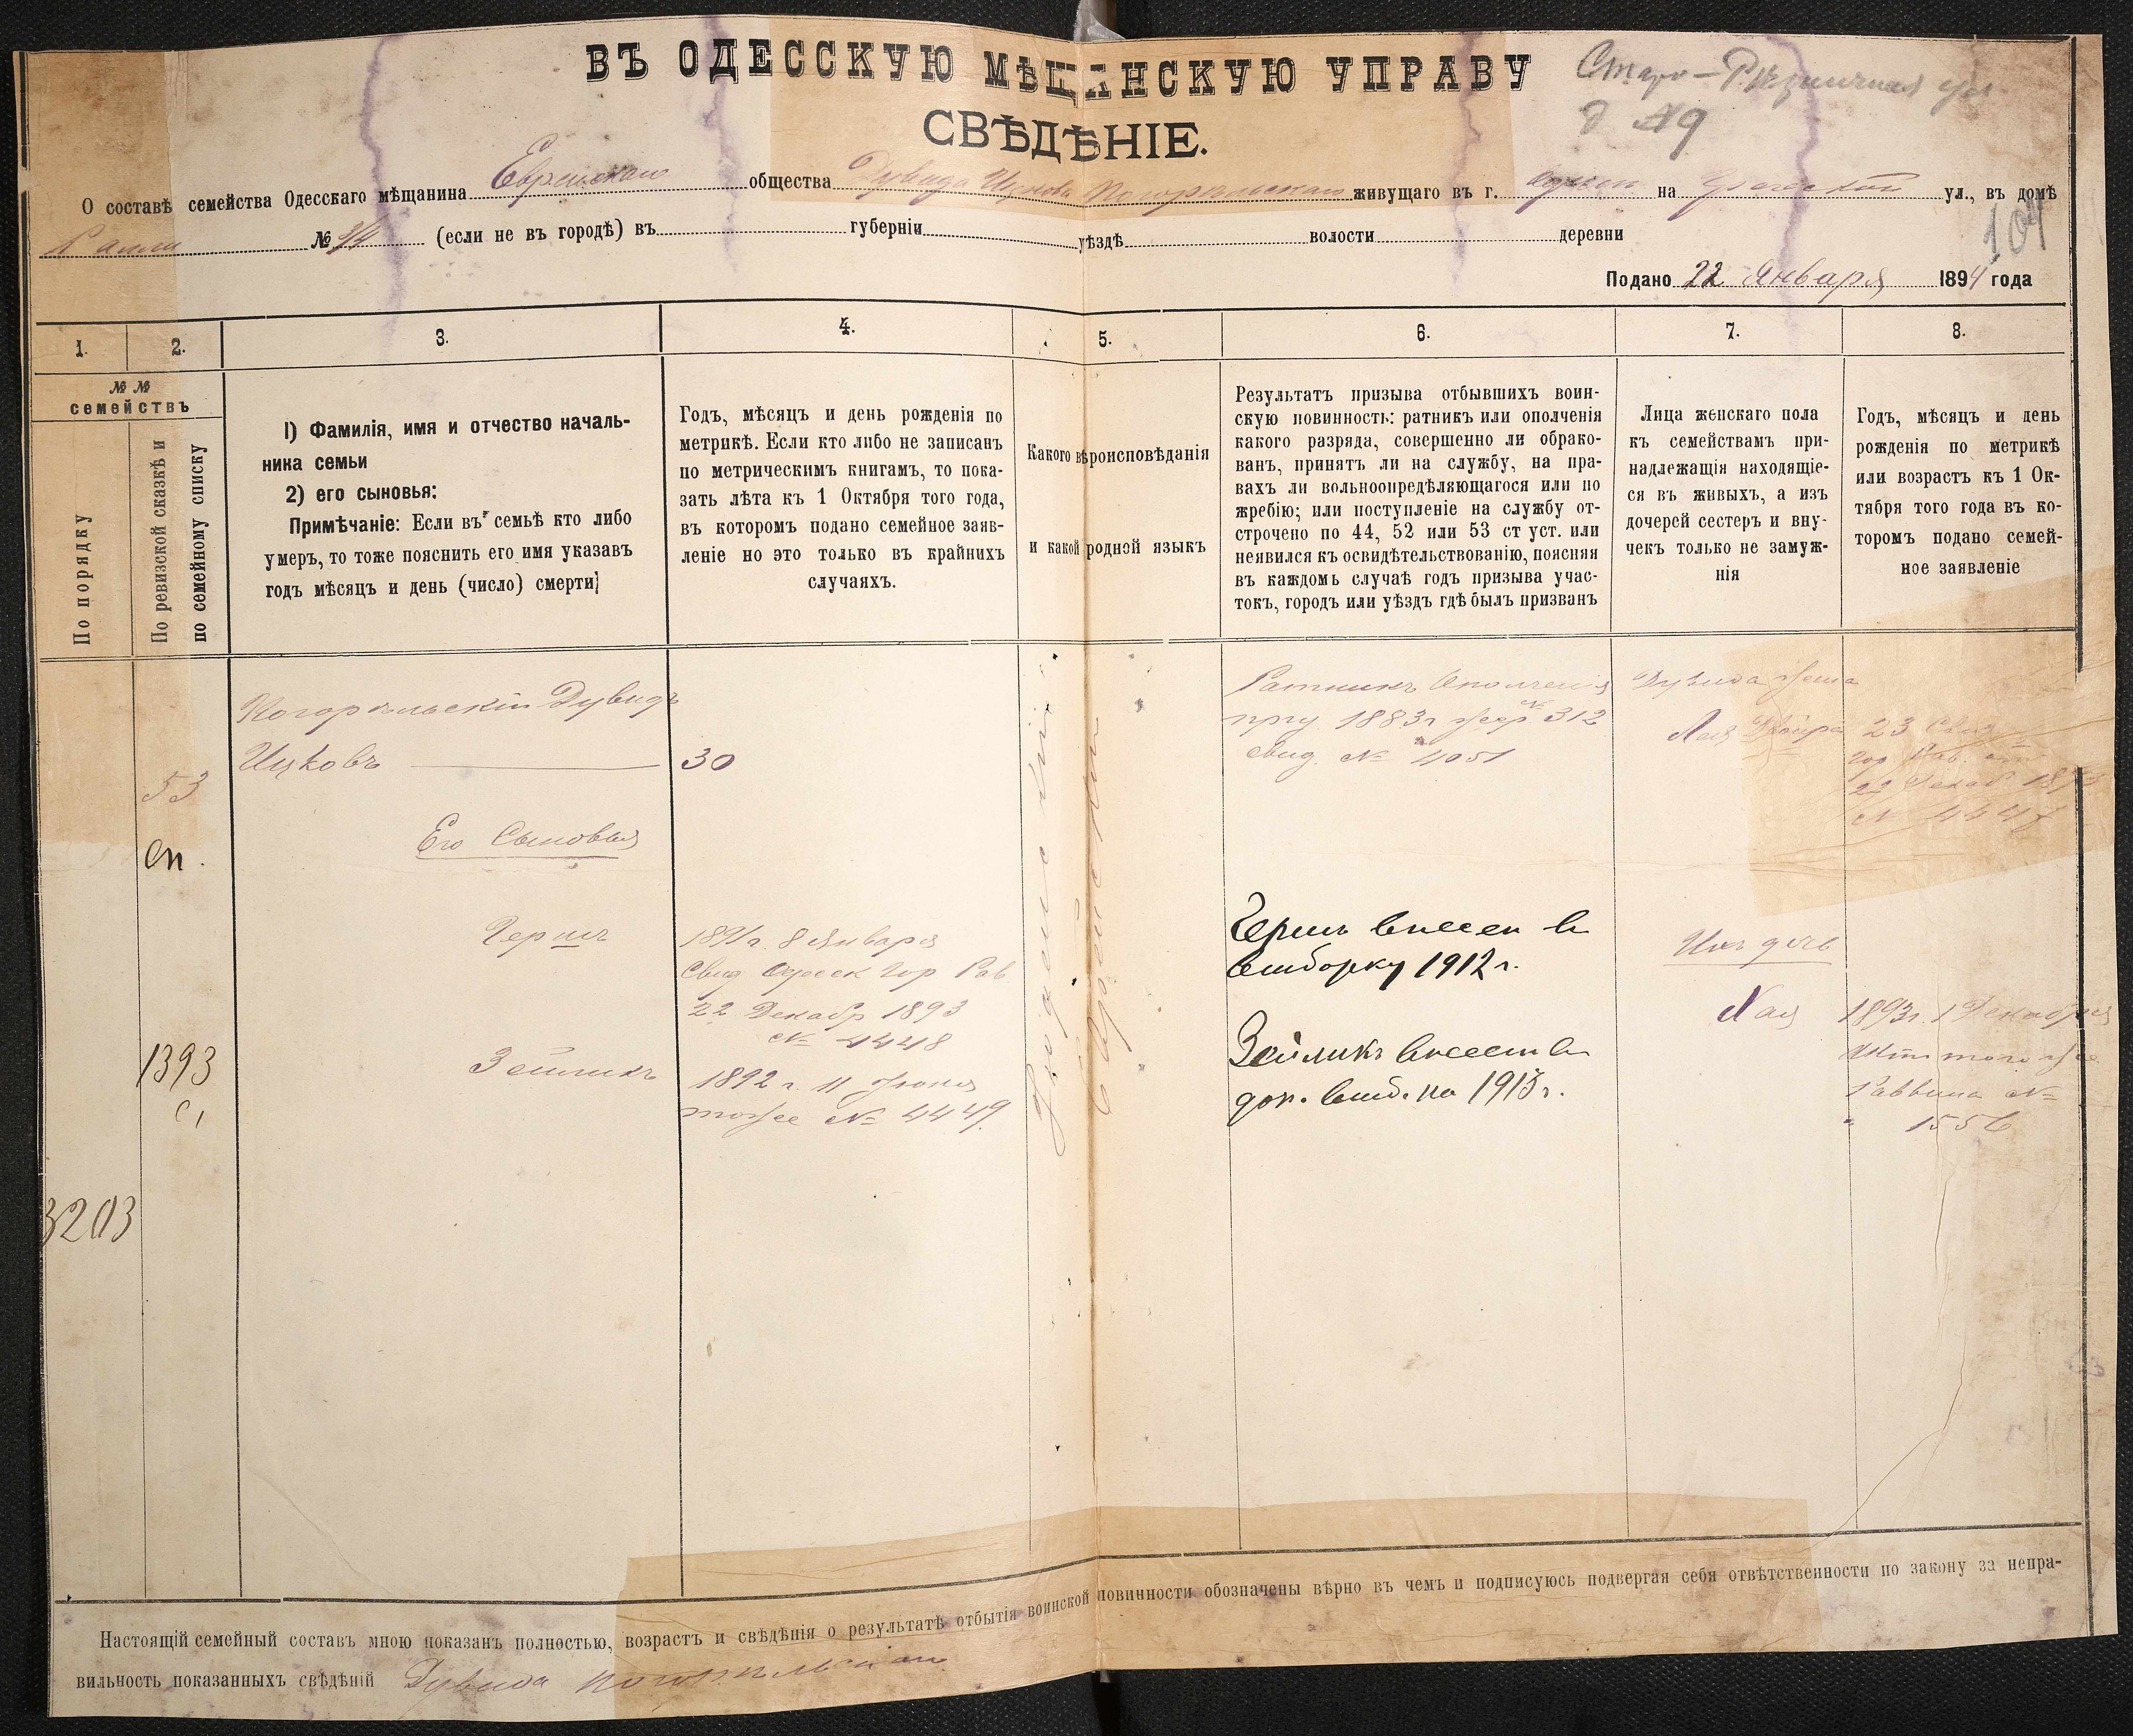 ВЪ ОДЕССКУЮ МѢЩАНСКУЮ УПРАВУ
Старо-Рѣзничная ул
д 19
СВѢДѢНІЕ.
О составѣ семейства Одесскаго мѣщанина Еврейскаго общества Дувида Ицкова Погорѣльскаго живущаго въ г. Одессѣ на Греческой ул., въ домѣ
Ралли № 3/4 (если не въ городѣ) въ губерніи уѣздѣ волости деревни
104
Подано 22 Января 1894 года
1. 2. 3. 4. 5. 6. 7. 8.
№ №
семействъ
По порядку
По ревизской сказкѣ и
по семейному списку
1) Фамилія, имя и отчество началь-
ника семьи
2) его сыновья:
Примѣчаніе: Если въ семьѣ кто либо
умеръ, то тоже пояснить его имя указавъ
годъ мѣсяцъ и день (число) смерти]
Годъ, мѣсяцъ и день рожденія по
метрикѣ. Если кто либо не записанъ
по метрическимъ книгамъ, то пока-
зать лѣта къ 1 Октября того года,
въ которомъ подано семейное заяв-
леніе но это только въ крайнихъ
случаяхъ.
Какого вѣроисповѣданія
и какой родной языкъ
Результатъ призыва отбывшихъ воин-
скую повинность: ратникъ или ополченія
какого разряда, совершенно ли обрако-
ванъ, принятъ ли на службу, на пра-
вахъ ли вольноопредѣляющагося или по
жребію; или поступленіе на службу от-
строчено по 44, 52 или 53 ст уст. или
неявился къ освидѣтельствованію, поясняя
въ каждомъ случаѣ годъ призыва учас-
токъ, городъ или уѣздъ гдѣ былъ призванъ
Лица женскаго пола
къ семействамъ при-
надлежащія находящіе-
ся въ живыхъ, а изъ
дочерей сестеръ и вну-
чекъ только не замуж-
нія
Годъ, мѣсяцъ и день
рожденія по метрикѣ
или возрастъ къ 1 Ок-
тября того года въ ко-
торомъ подано семей-
ное заявленіе
3203
53
сп.
1393
Погорѣльскій Дувидъ
Ицковъ
Его Сыновья
Гершъ
Зейликъ
30
1891 г. 8 Января
Свид Одесск Гор Рав
22 Декабр 1893
№ 4448
1892 г. 11 Іюня
тоже № 4449.
Іудейскій
Еврейскій
Ратникъ Ополченія
приз 1883 г жер № 312
Свид. № 4051
Гершъ внесен в
1912 г.
Зейликъ внесен в
на 1913 г.
Дувида жена
Лая Двойра
Ихъ дочь
Хая
23 Свид
Гор Рав. от
22 Декаб 1893
№ 4447
1893 г. 1 Декабря
того же
Раввина №
1556
Настоящій семейный составъ мною показанъ полностью, возрастъ и свѣдѣнія о результатѣ отбытія воинской повинности обозначены вѣрно въ чемъ и подписуюсь подвергая себя отвѣтственности по закону за непра-
вильность показанныхъ свѣдѣній Дувида Погорѣльскаго